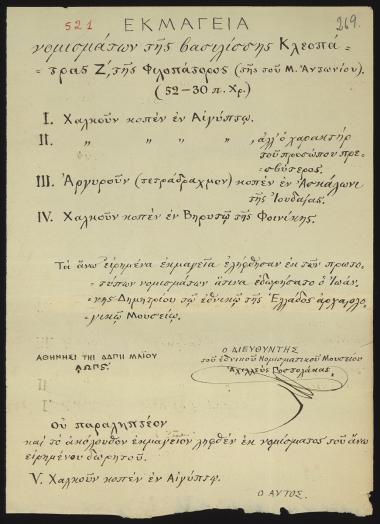 521
269.
ΕΚΜΑΓΕΙΑ
νομισμάτων τῆς βασιλίσσης Κλεοπά-
τρας Ζ', τῆς Φιλοπάτορος (τῆς τοῦ Μ. Ἀντωνίου).
(52–30 π. Χρ.)
I. Χαλκοῦν κοπὲν ἐν Αἰγύπτῳ.
II. „ „ „ „ , ἀλλ' ὁ χαρακτὴρ
τοῦ προσώπου πρε-
σβύτερος.
III. Ἀργυροῦν (τετράδραχμον) κοπὲν ἐν Ἀσκάλωνι
τῆς Ἰουδαίας.
IV. Χαλκοῦν κοπὲν ἐν Βηρυτῷ τῆς Φοινίκης.
Τὰ ἄνω εἰρημένα ἐκμαγεῖα ἐλήφθησαν ἐκ τῶν πρωτο-
τύπων νομισμάτων ἅτινα ἐδωρήσατο ὁ Ἰωάν-
νης Δημητρίου τῷ ἐθνικῷ τῆς Ἑλλάδος ἀρχαιολο-
γικῷ Μουσείῳ.
ΑΘΗΝΗΣΙ ΤΗΙ ΔΔΠΙΙ ΜΑΪΟΥ
Ο ΔΙΕΥΘΥΝΤΗΣ
τοῦ ἐθνικοῦ Νομισματικοῦ Μουσείου
Ἀχιλλεὺς Ποστολάκας.
Οὐ παραλητπέον
καὶ τὸ ἀκόλουθον ἐκμαγεῖον ληφθὲν ἐκ νομίσματος τοῦ ἄνω
εἰρημένου δωρητοῦ.
V. Χαλκοῦν κοπὲν ἐν Αἰγύπτῳ.
Ο ΑΥΤΟΣ.